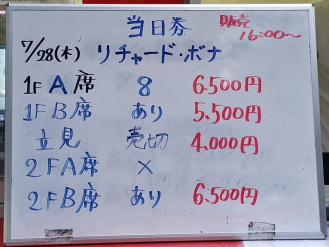 当日券 販売 16:00〜
7/28(木) リチャード・ボナ
1F A席 8 6.500円
1F B席 あり 5.500円
立見 売切 4.000円
2F A席 ×
2F B席 あり 6.500円